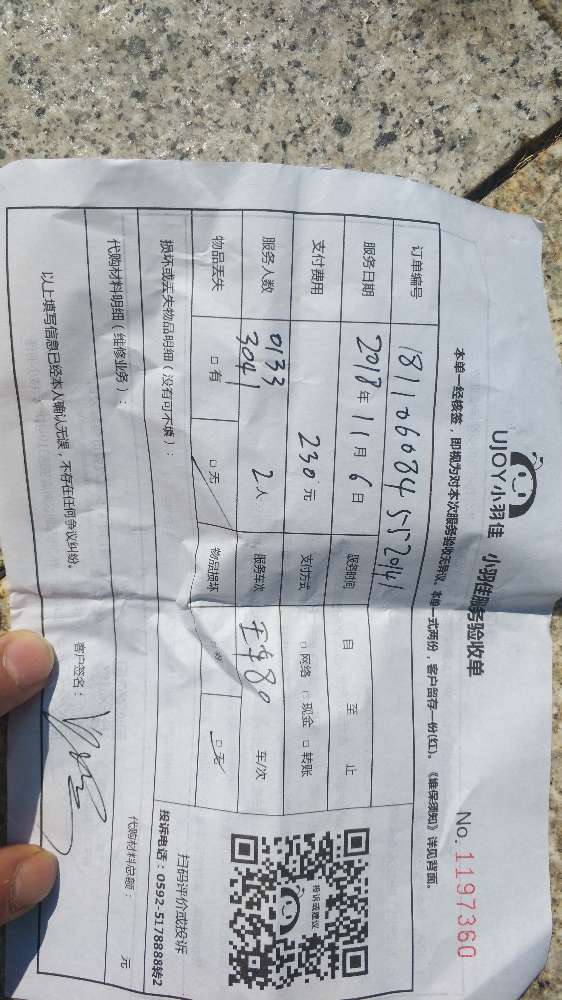 UJOY小羽佳 小羽佳服务验收单
No. 1197360
本单一经核签，即视为对本次服务验收无异议，本单一式两份，客户留存一份(红)。《维保须知》详见背面。
订单编号 18110608455520141
服务日期 2018年11月6日 服务时间 自 至 止
支付费用 230元 支付方式 □网络 □现金 □转账
服务人数 0133 3041 2人 服务车次 80 车/次
物品丢失 □有 □无 物品损坏 □无
损坏或丢失物品明细（没有可不填）：
代购材料明细（维修业务）：
代购材料总额： 元
以上填写信息已经本人确认无误，不存在任何争议纠纷。
客户签名：
投诉或建议
扫码评价或投诉
投诉电话：0592-5178888转2